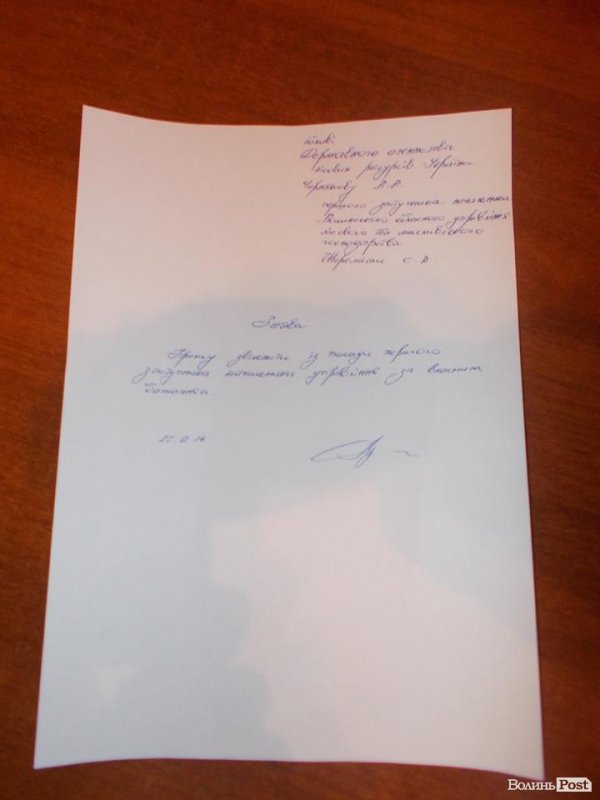 Голові
Державного агентства
лісових ресурсів України
Чернякову В.В.
першого заступника начальника
Волинського обласного управління
лісового та мисливського
господарства
Шеремети С. В
Заява
Прошу звільнити із посади першого
заступника начальника управління за власним
бажанням.
ВолиньPost